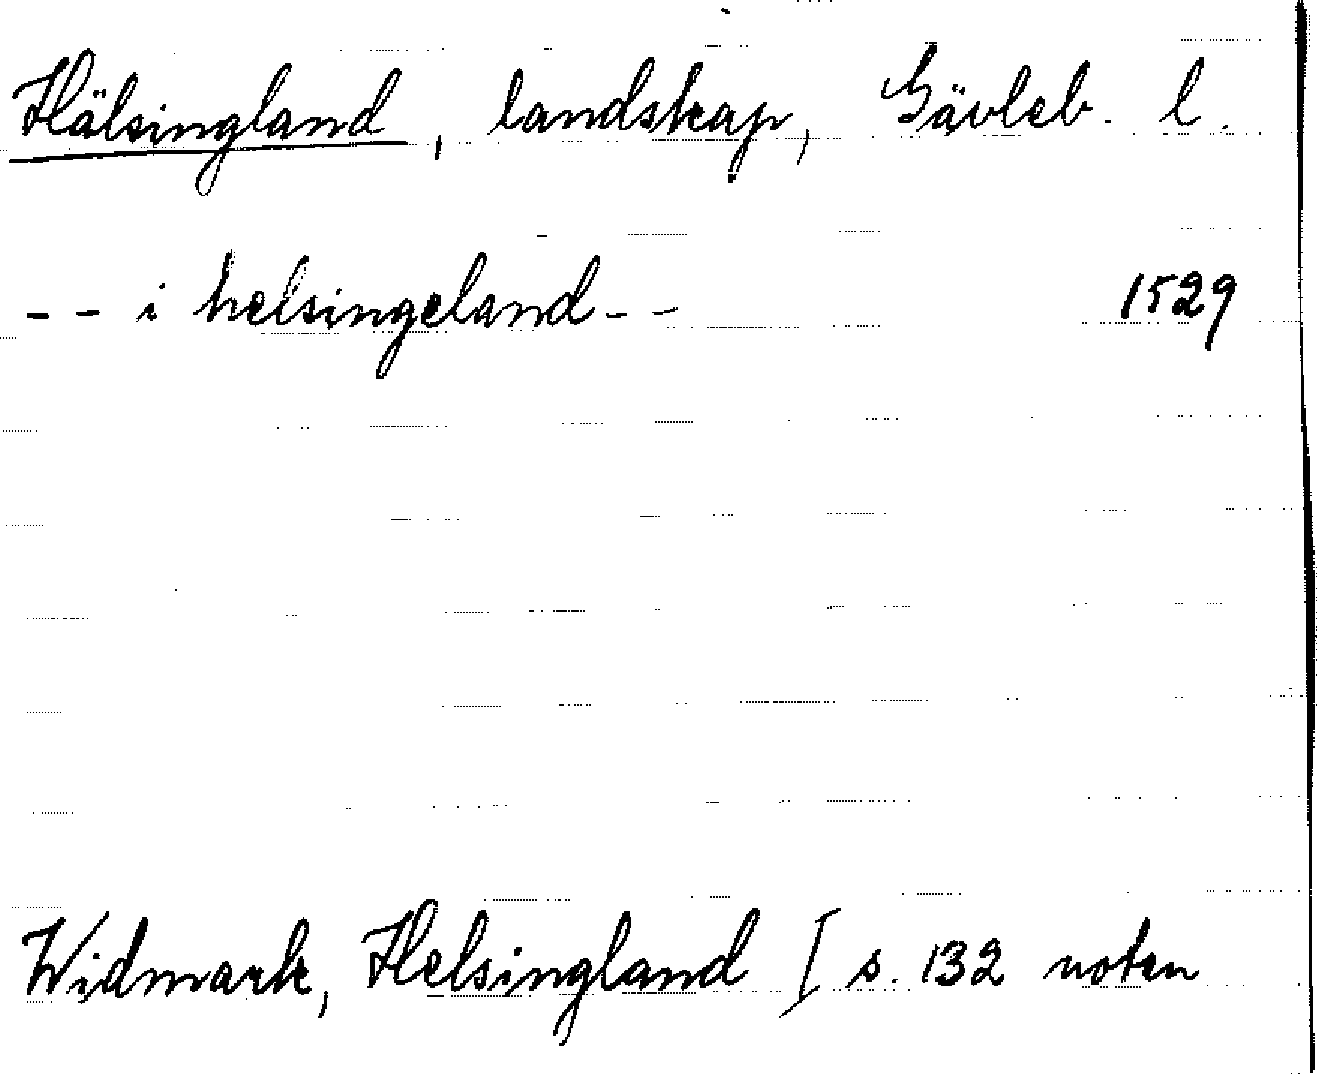 Hälsingland, landskap, Gävleb. l.
-- i helsingeland-- 1529
Widmark, Helsingland I s. 132 noten